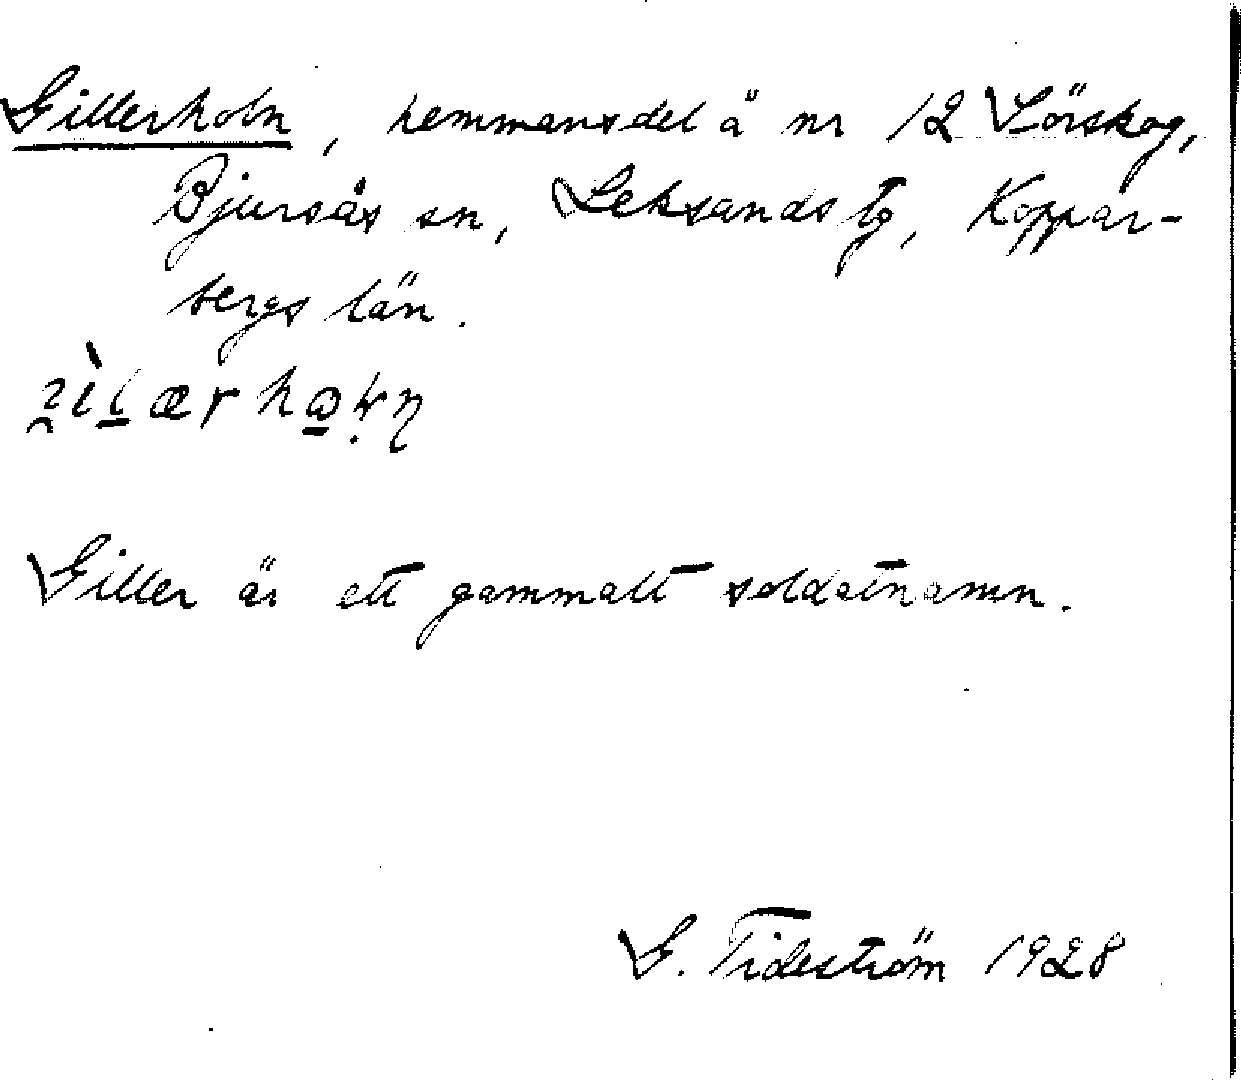 Gillerholn, hemmansdel å nr 12 Sörskog,
Bjursås sn, Leksands tg, Koppar-
bergs län.
Giller är ett gammalt soldatnamn.
G. Tideström 1928